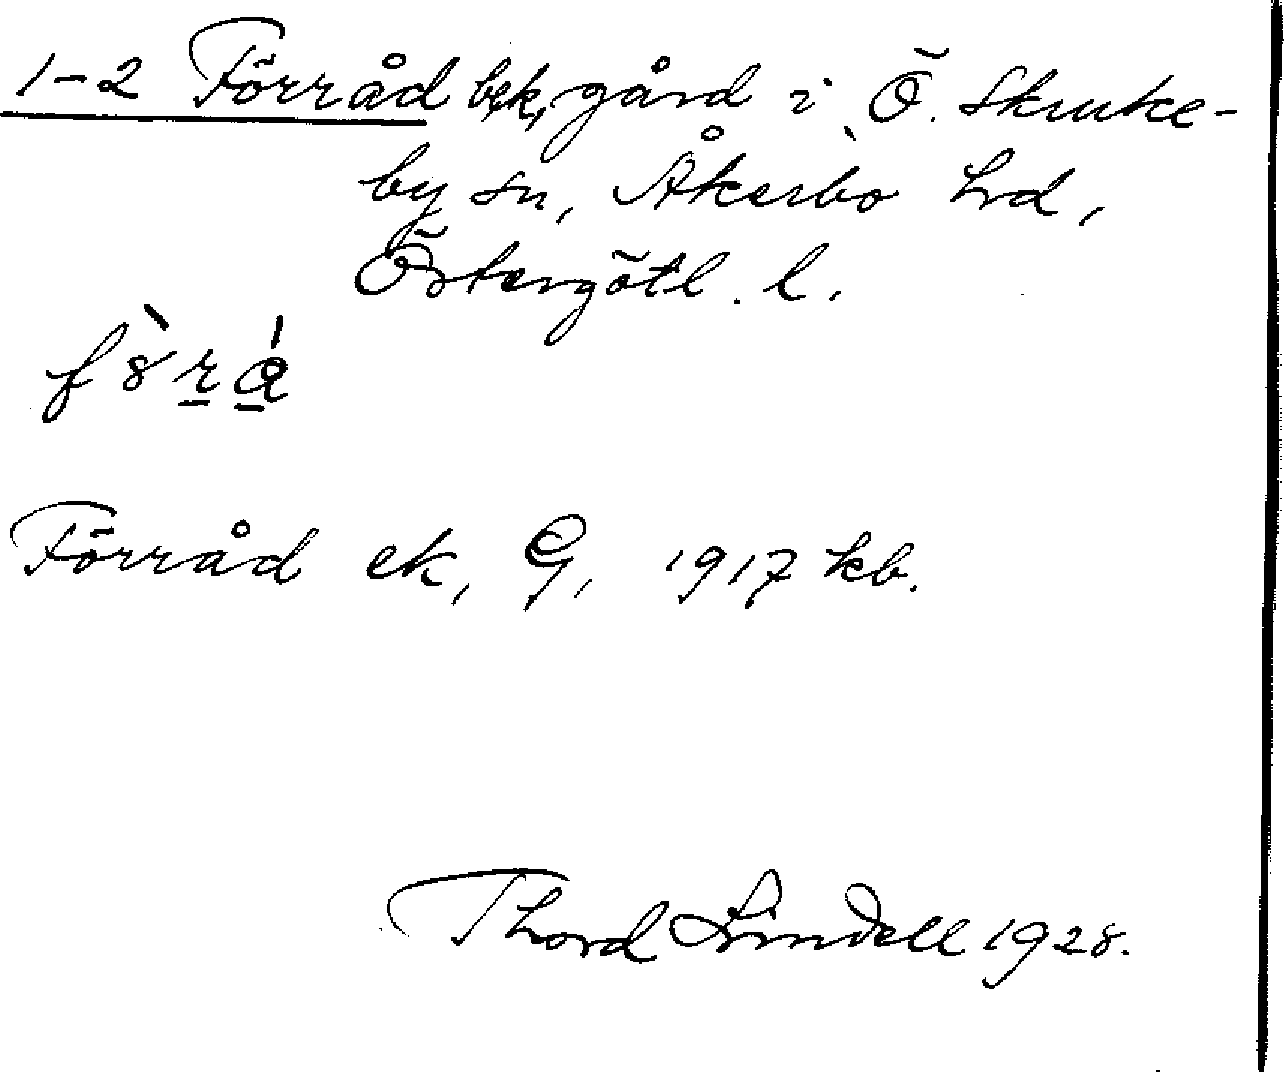 1-2 Förråd bek, gård i Ö. Skruke-
by sn, Åkerbo hd,
Östergötl. l.
Förråd ek, G, 1917 kb.
Thord Lindell 1928.